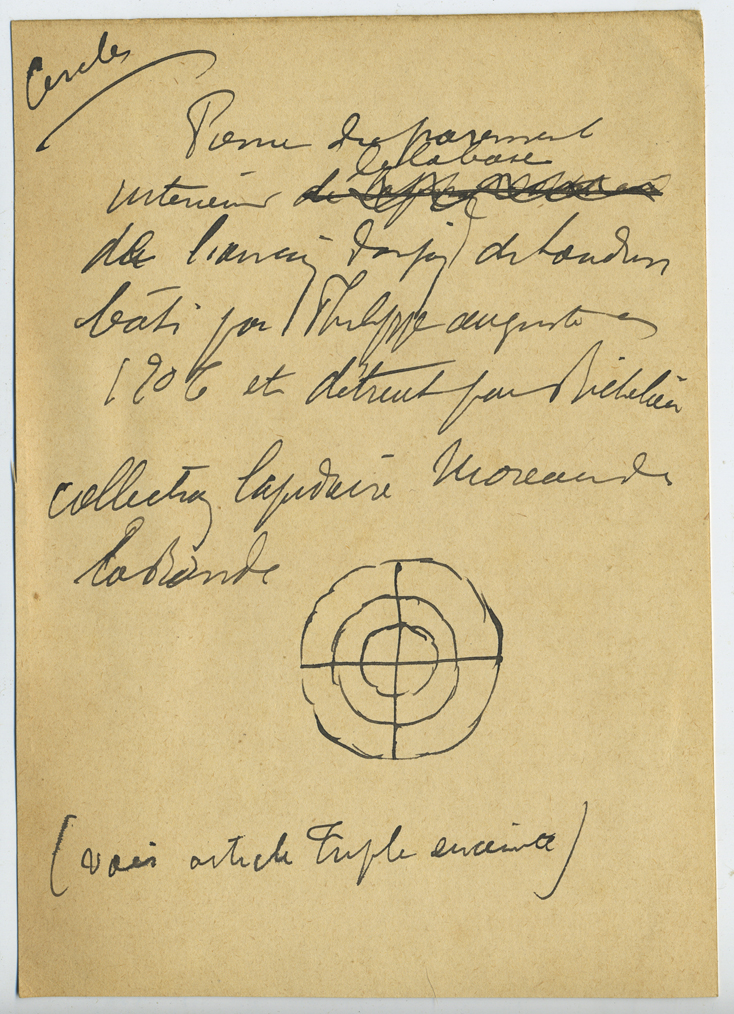 Cercles
Pierre du parement
de la base
intérieur
de l'ancien donjon de Loudun
bâti par Philippe auguste en
1206 et détruit par Richelieu
collection lapidaire Moreau de
la Ronde
(voir article Triple enceinte)